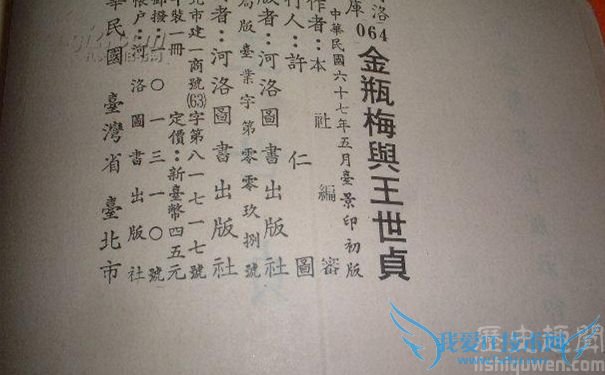 洛
庫
064
金瓶梅與王世貞
中華民國六十七年五月臺景印初版
作者：本社編審
行人：許仁圖
版者：河洛圖書出版社
局版臺業字第零零玖捌號
者：河洛圖書出版社
北市建一商號(63)字第八一七一一七號
裝一冊 定價：新臺幣四五元
郵撥：〇一三一一〇號
帳戶：河洛圖書出版社
華民國 臺灣省 臺北市
歷史趣聞
lishiquwen.com